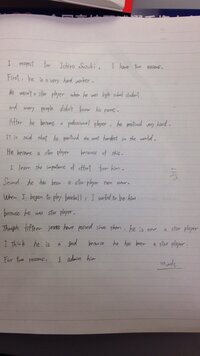 I respect for Ichiro Suzuki. I have two reasons.
First, he is a very hard worker.
He wasn't a star player when he was high school student
and many people didn't know his name.
After he became a professional player, he practiced very hard.
It is said that he practiced the most hardest in the world.
He became a star player because of this.
I learn the importance of effort from him.
Second he has been a star player ever since.
When I began to play baseball, I wanted to be him
because he was star player.
Though fifteen years have passed since then, he is now a star player
I think he is a god because he has been a star player.
For two reasons, I admire him
words